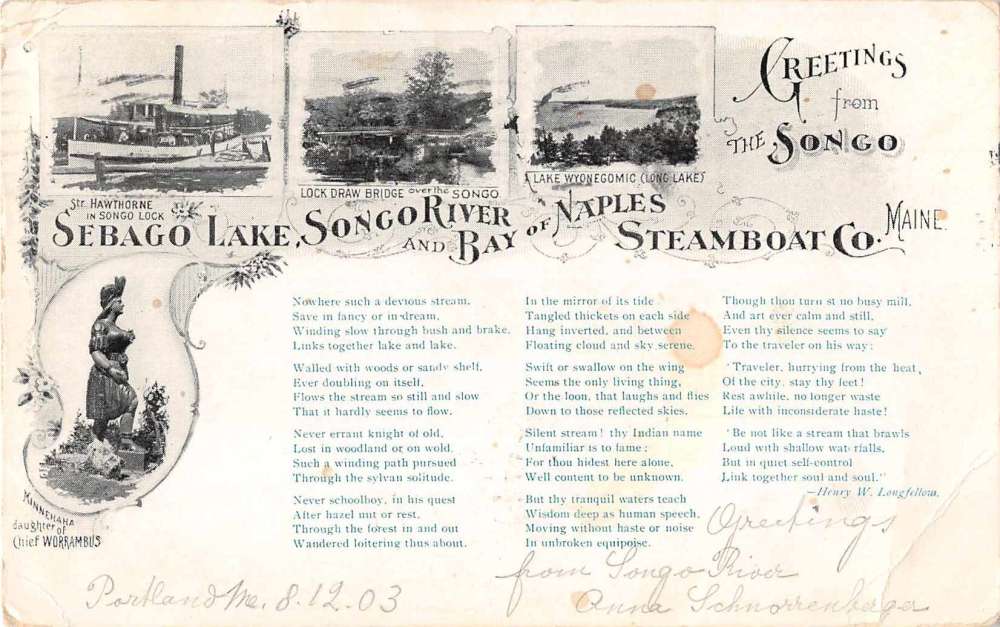 GREETINGS
from
THE SONGO
Str. HAWTHORNE
IN SONGO LOCK
LOCK DRAW BRIDGE over the SONGO
LAKE WYONEGOMIC (LONG LAKE)
SEBAGO LAKE, SONGO RIVER AND BAY OF NAPLES STEAMBOAT CO. MAINE.
MINNEHAHA
daughter of
Chief WORRAMBUS
Nowhere such a devious stream,
Save in fancy or in dream,
Winding slow through bush and brake,
Links together lake and lake.
Walled with woods or sandy shelf,
Ever doubling on itself,
Flows the stream so still and slow
That it hardly seems to flow.
Never errant knight of old,
Lost in woodland or on wold,
Such a winding path pursued
Through the sylvan solitude.
Never schoolboy, in his quest
After hazel nut or rest,
Through the forest in and out
Wandered loitering thus about.
In the mirror of its tide
Tangled thickets on each side
Hang inverted, and between
Floating cloud and sky serene.
Swift or swallow on the wing
Seems the only living thing,
Or the loon, that laughs and flies
Down to those reflected skies.
Silent stream! thy Indian name
Unfamiliar is to fame;
For thou hidest here alone,
Well content to be unknown.
But thy tranquil waters teach
Wisdom deep as human speech,
Moving without haste or noise
In unbroken equipoise.
Though thou turn st no busy mill,
And art ever calm and still,
Even thy silence seems to say
To the traveler on his way:
"Traveler, hurrying from the heat,
Of the city, stay thy feet!
Rest awhile, no longer waste
Life with inconsiderate haste!
"Be not like a stream that brawls
Loud with shallow waterfalls,
But in quiet self-control
Link together soul and soul."
—Henry W. Longfellow.
Greetings
from Songo River
Portland Me. 8.12.03
Anna Schnorrenberger